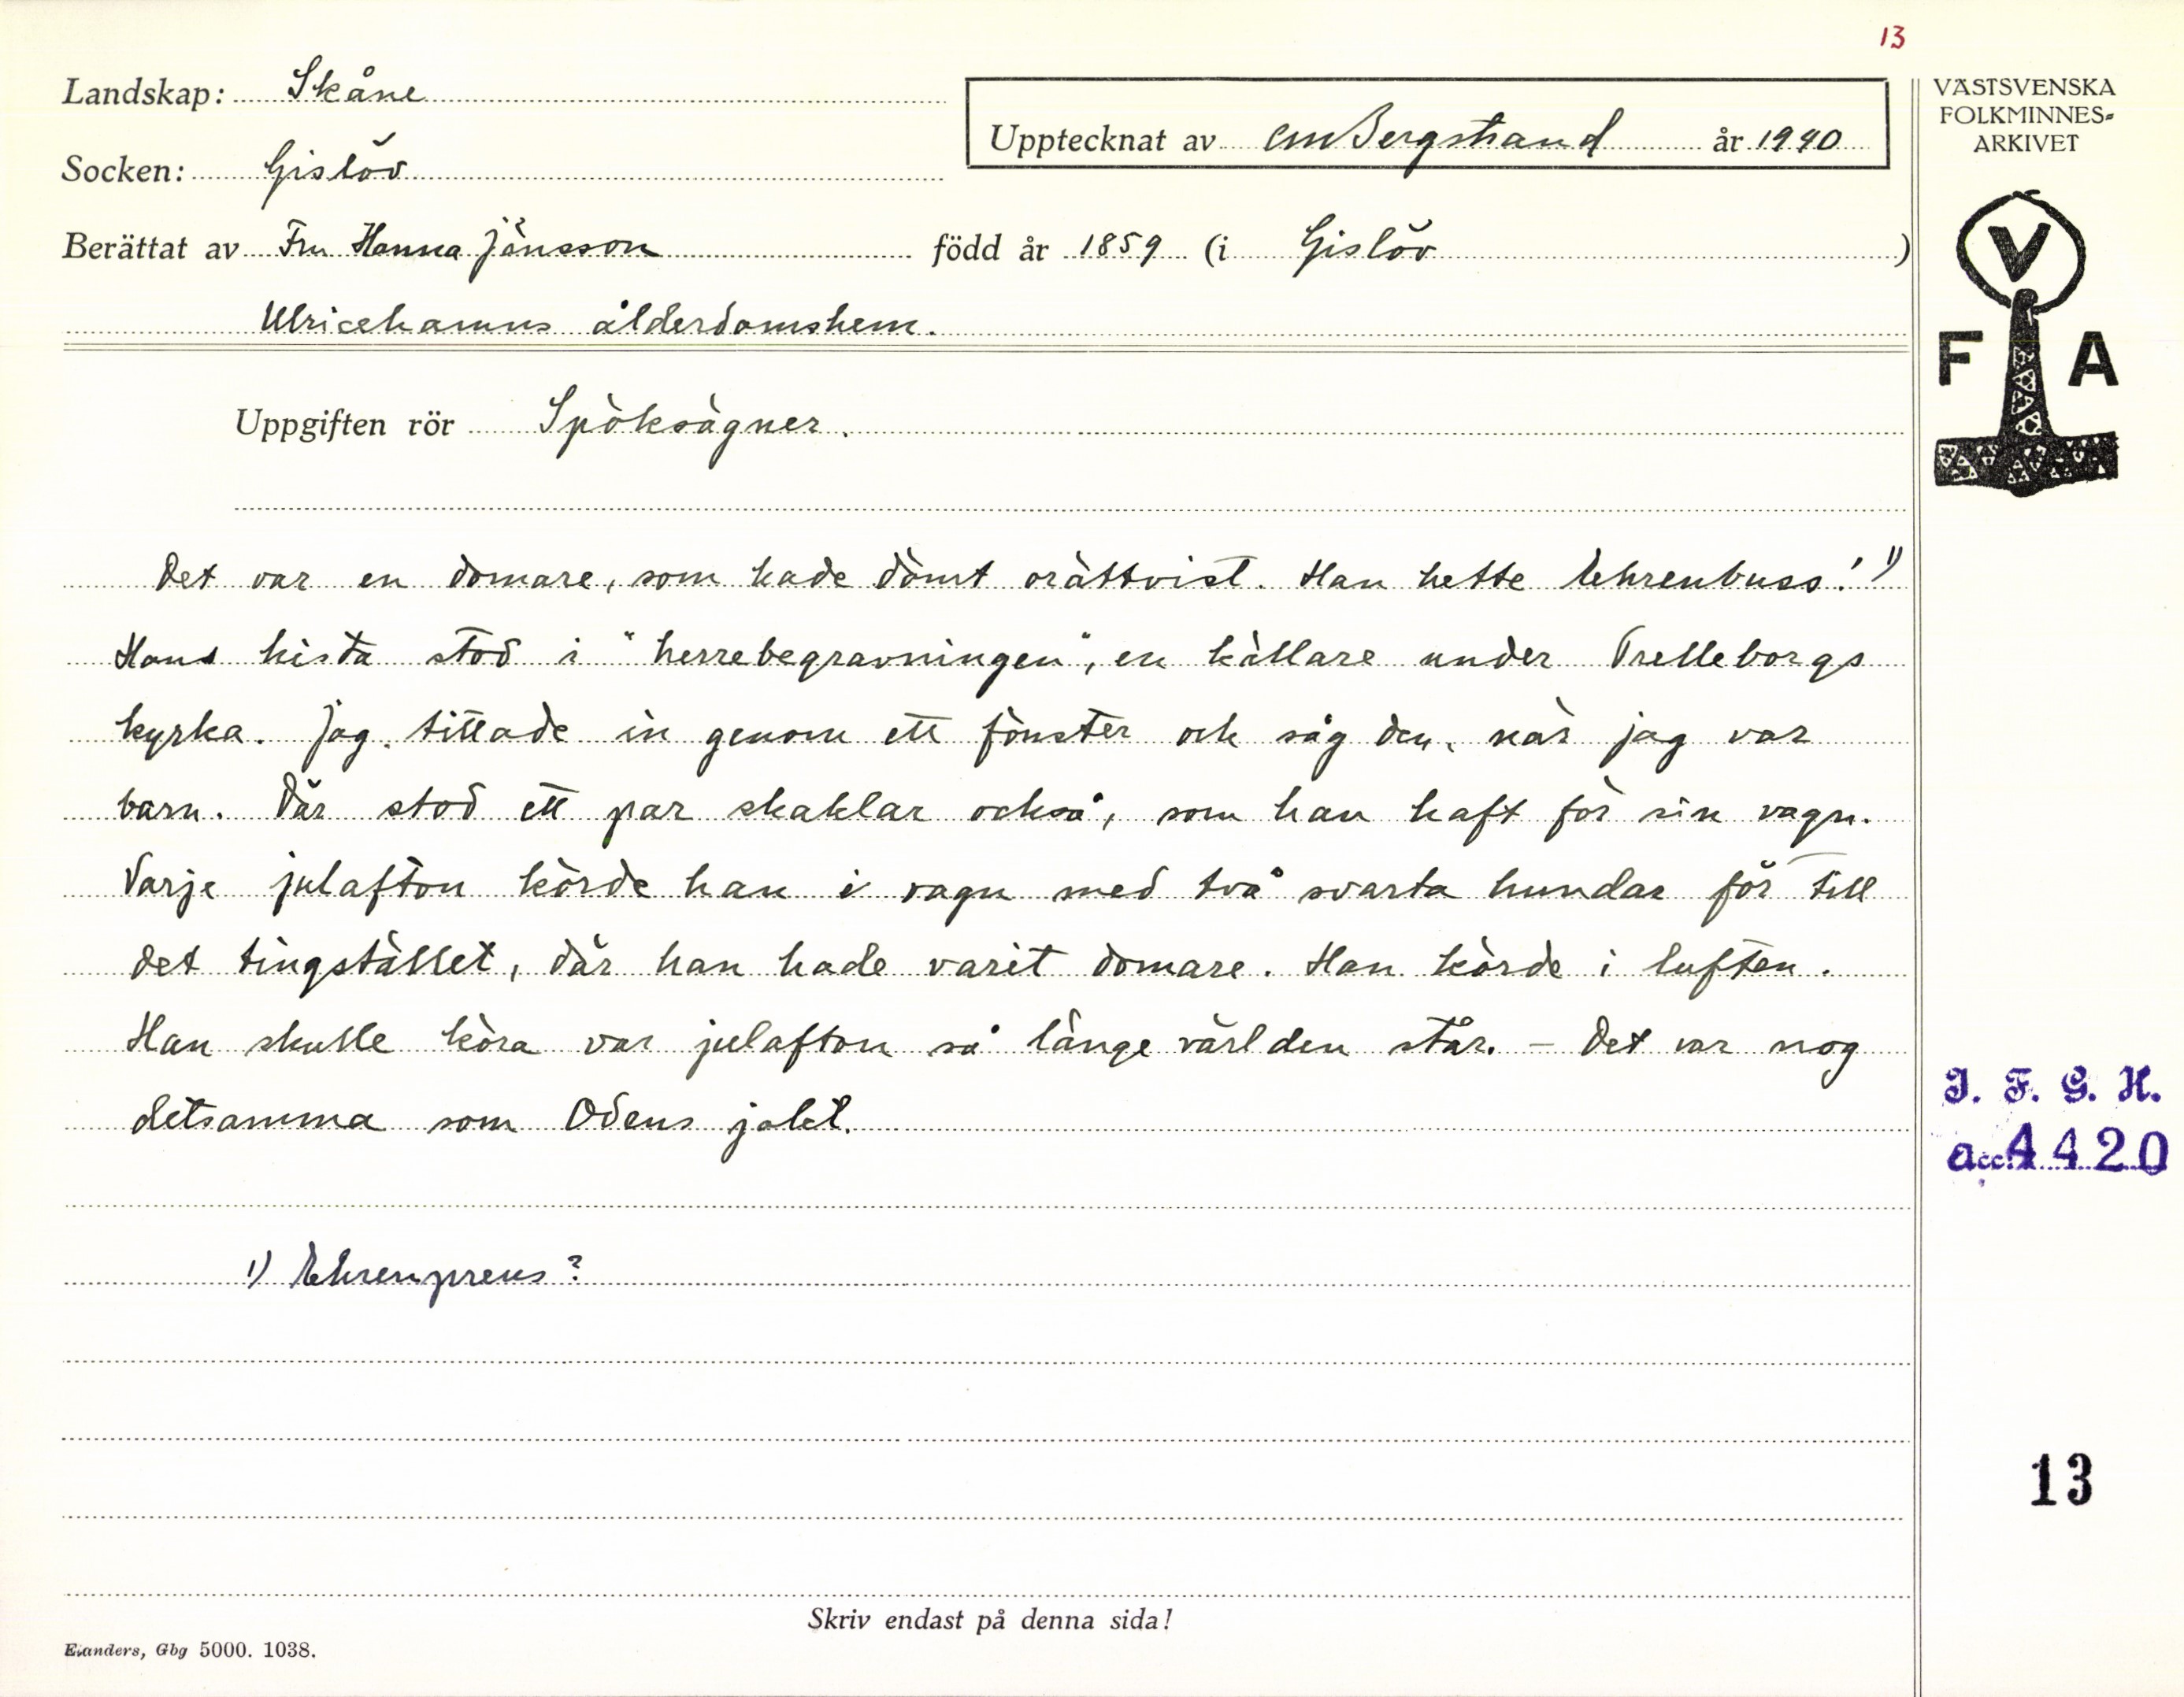 13
Landskap: Skåne
Upptecknat av CM Bergstrand år 1940
Socken: Gislöv
Berättat av Fru Hanna Jönsson född år 1859 (i Gislöv)
Ulricehamns ålderdomshem.
Uppgiften rör Spöksägner.
Det var en domare, som hade dömt orättvist. Han hette Ehrenbuss! 1)
Hans kista stod i "herrebegravningen", en källare under Trelleborgs
kyrka. Jag tittade in genom ett fönster och såg den, när jag var
barn. Där stod ett par skaklar också, som han haft för sin vagn.
Varje julafton körde han i vagn med två svarta hundar för till
det tingstället, där han hade varit domare. Han körde i luften.
Han skulle köra var julafton så länge världen står. – Det var nog
detsamma som Odens jakt.
1) Ehrenpreus?
Skriv endast på denna sida!
Elanders, Gbg 5000. 1038.
VÄSTSVENSKA
FOLKMINNES=
ARKIVET
V
F A
I. F. G. H.
acc. 4420
13